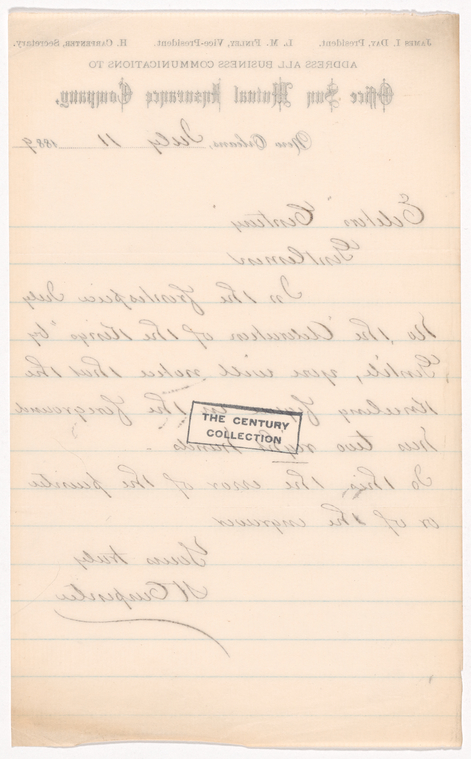 James I. Day, President. L. M. Finley, Vice-President. H. Carpenter, Secretary.
ADDRESS ALL BUSINESS COMMUNICATIONS TO
Office Sun Mutual Insurance Company,
New Orleans, July 11 1889
Editor "Century"
Gentlemen
In the frontispiece July
No, the "Adoration of the Kings" by
Gentile, you will notice that the
Kneeling figure in the foreground
has two right hands.
Is this the error of the painter
or of the engraver
Yours truly
H Carpenter
THE CENTURY
COLLECTION